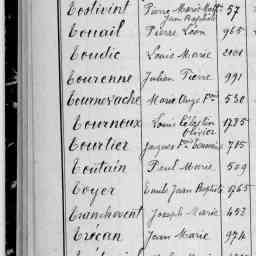 Tostivint Pierre Marie Math 57
Jean Baptiste
Touail Pierre Léon 965
Toudic Louis Marie
Tourenne Julien Pierre 991
Tournevache Marie Ange Fçois 530
Tourneux Louis Célestin 1785
Olivier
Tourtier Jacques 785
Toutain Paul Marie 509
Toyer Emile Jean Baptiste 1765
Tranchevent Joseph Marie 452
Trécan Jean Marie 974